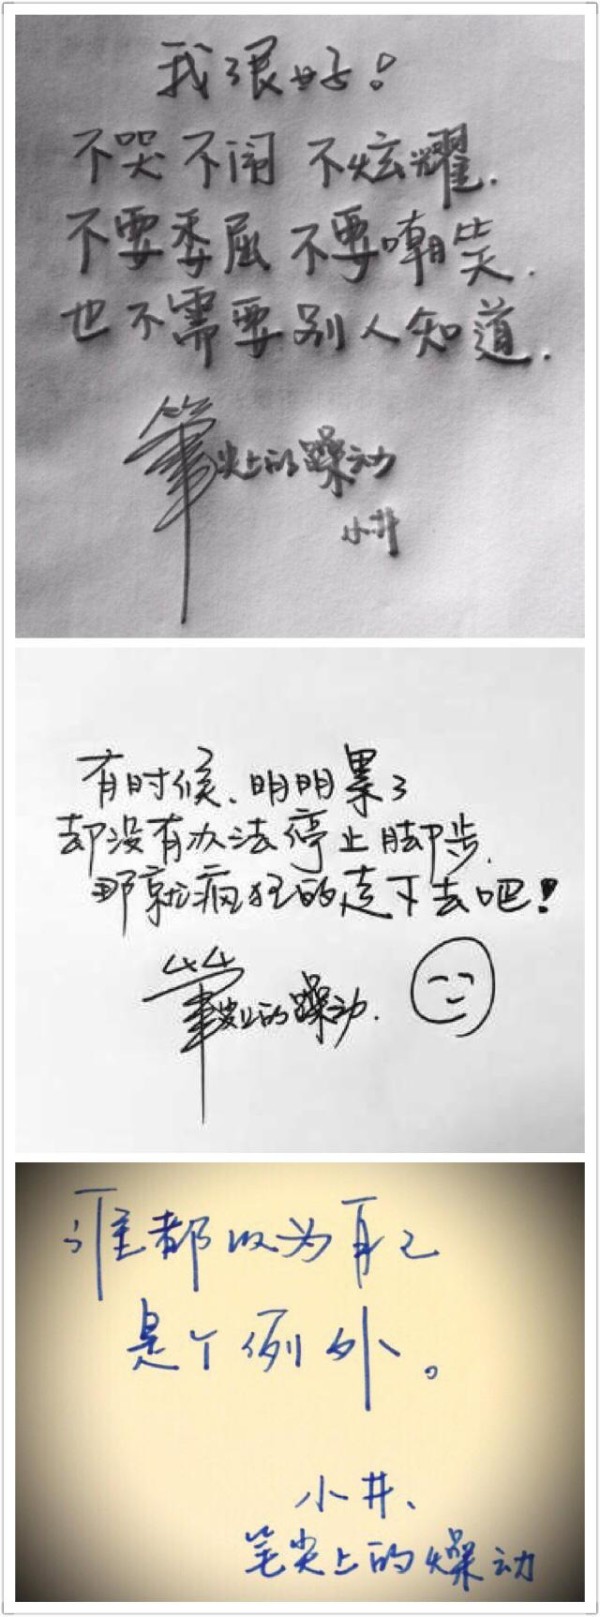 我很好！
不哭不闹 不炫耀.
不要委屈 不要嘲笑.
也不需要别人知道.
筆尖上的躁动
小井
有时候、明明累了
却没有办法停止脚步.
那就疯狂的走下去吧！
筆尖上的躁动.
谁都以为自己
是个例外。
小井、
笔尖上的燥动